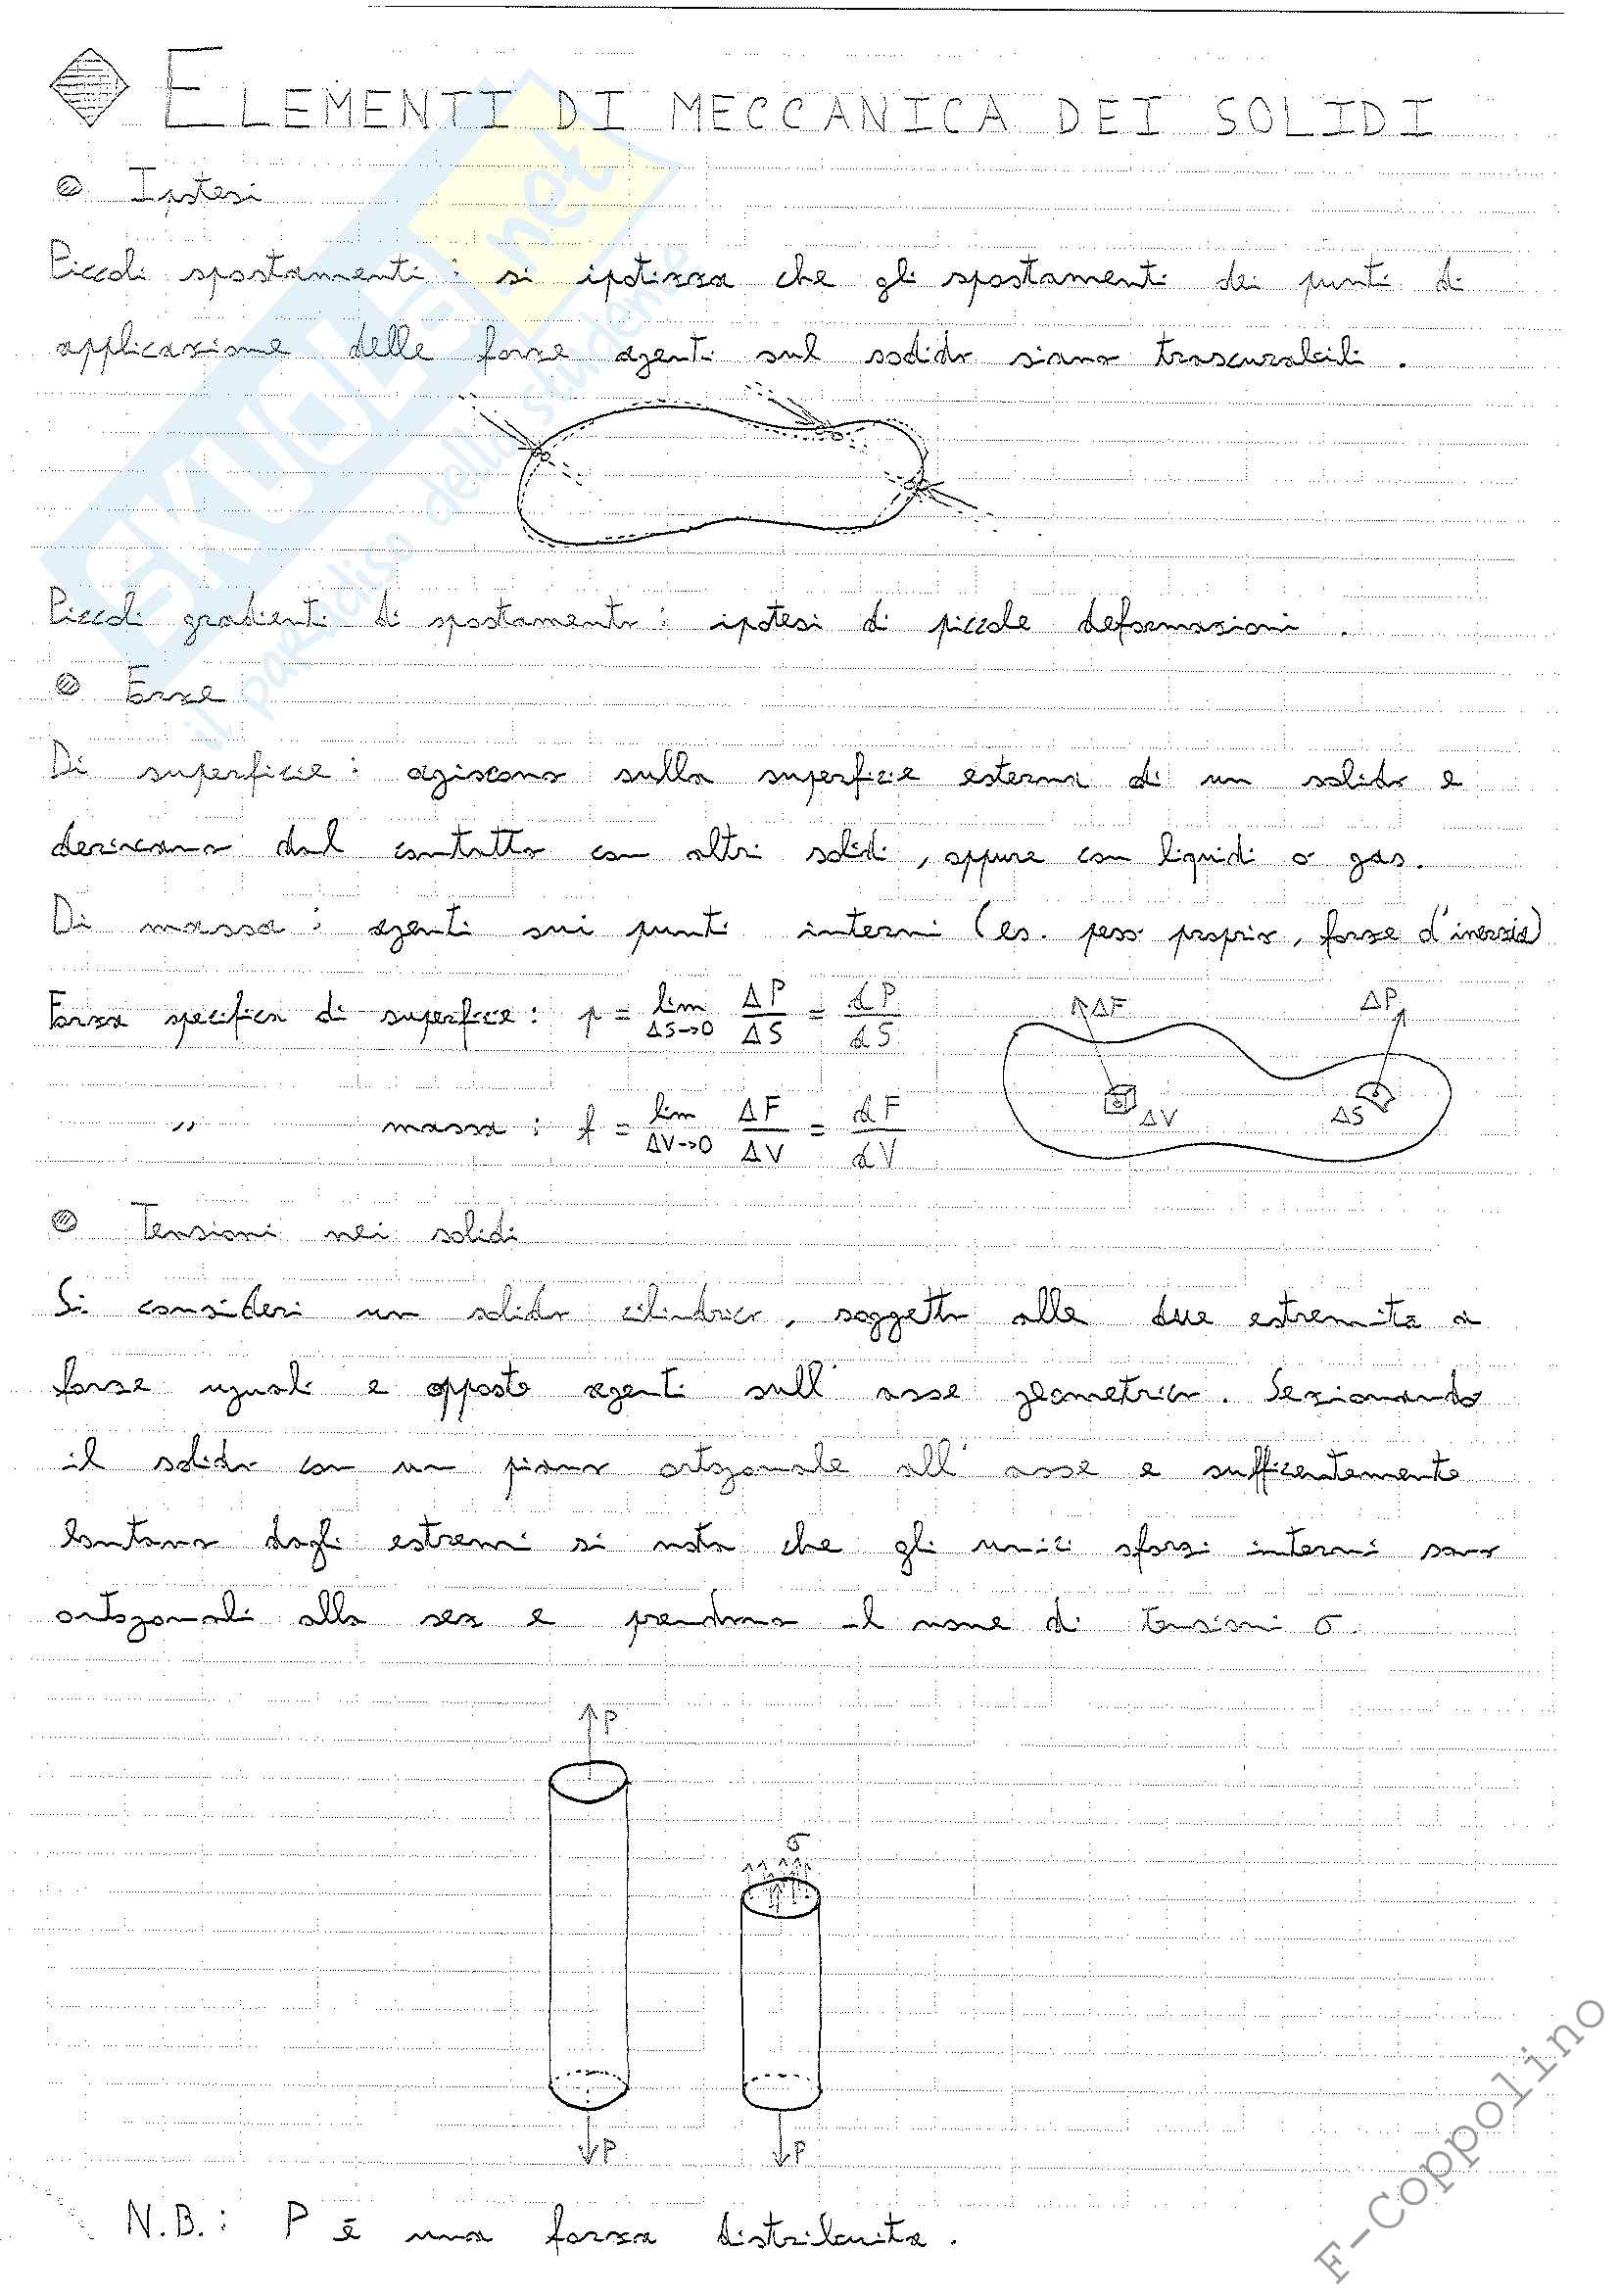 ELEMENTI DI MECCANICA DEI SOLIDI
Ipotesi
Piccoli spostamenti: si ipotizza che gli spostamenti dei punti di
applicazione delle forze agenti sul solido siano trascurabili.
Piccoli gradienti di spostamento: ipotesi di piccole deformazioni.
Forze
Di superficie: agiscono sulla superficie esterna di un solido e
derivano dal contatto con altri solidi, oppure con liquidi o gas.
Di massa: agenti sui punti interni (es. peso proprio, forze d'inerzia)
Forza specifica di superficie: p = lim ΔS->0 ΔP/ΔS = dP/dS
ΔF ΔP
ΔV ΔS
" massa: f = lim ΔV->0 ΔF/ΔV = dF/dV
Tensioni nei solidi
Si consideri un solido cilindrico, soggetto alle due estremità a
forze uguali e opposte agenti sull'asse geometrico. Sezionando
il solido con un piano ortogonale all'asse e sufficentemente
lontano dagli estremi si nota che gli unici sforzi interni sono
ortogonali alla sez e prendono il nome di tensioni σ.
P
σ
P P
N.B.: P è una forza distribuita.
SKUOLA.net
il paradiso dello studente
F-Coppolino